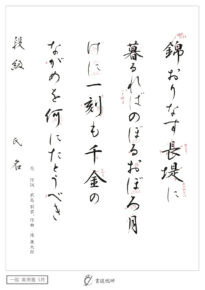 錦おりなす長堤に
暮るればのぼるおぼろ月
げに一刻も千金の
ながめを何にたとうべき
段級　氏名
花　作詞　武島羽衣　作曲　滝廉太郎
書道教師